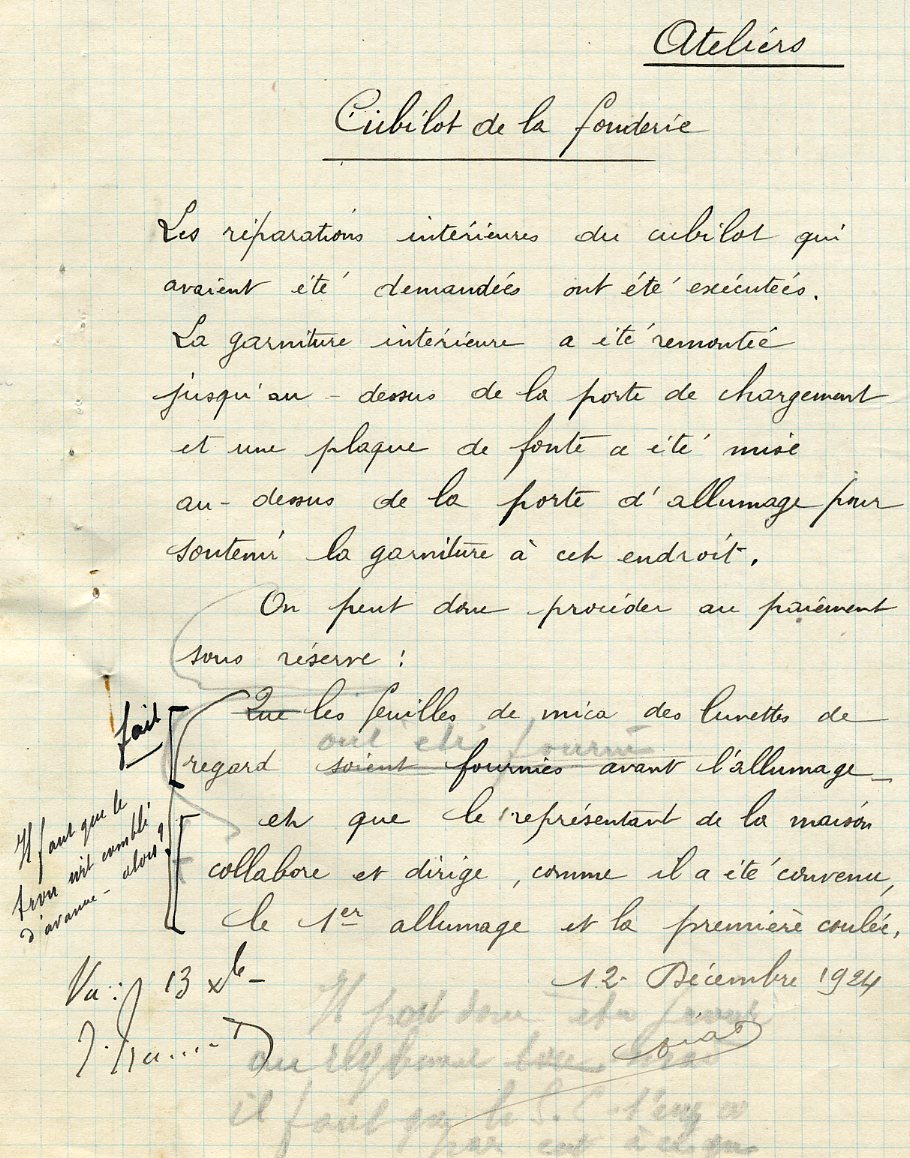 Ateliérs
Cubilot de la fonderie
Les réparations intérieures du cubilot qui
avaient été demandées ont été exécutées.
La garniture intérieure a été remontée
jusqu'au-dessus de la porte de chargement
et une plaque de fonte a été mise
au-dessus de la porte d'allumage pour
soutenir la garniture à cet endroit.
On peut donc procéder au paiement
sous réserve :
fait
Que les feuilles de mica des lunettes de
ont été fournies
regard soient fournies avant l'allumage
et que le représentant de la maison
collabore et dirige, comme il a été convenu,
le 1er allumage et la première coulée.
Il faut que le
trou soit comblé
d'avance - alors ?
Vu : 13 Xbe -
12 Décembre 1924
Il
il faut que le